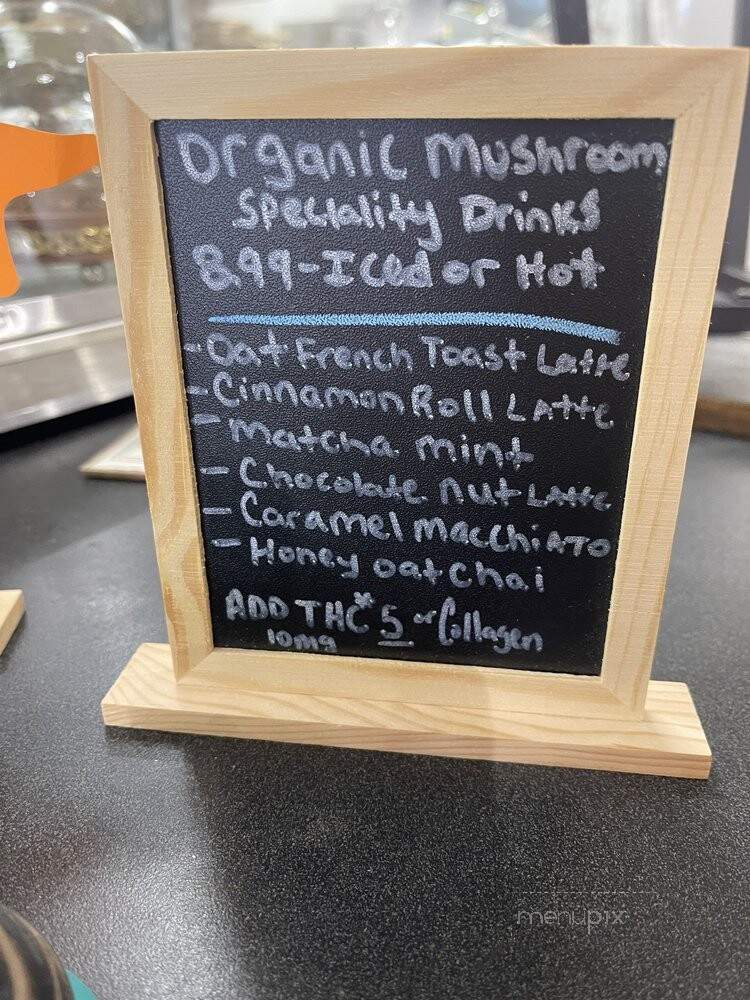 Organic Mushroom
Speciality Drinks
8.99-Iced or Hot
- Oat French Toast Latte
- Cinnamon Roll Latte
- Matcha mint
- Chocolate nut Latte
- Caramel Macchiato
- Honey oat chai
ADD THC* 5 or Collagen
10mg
menupix